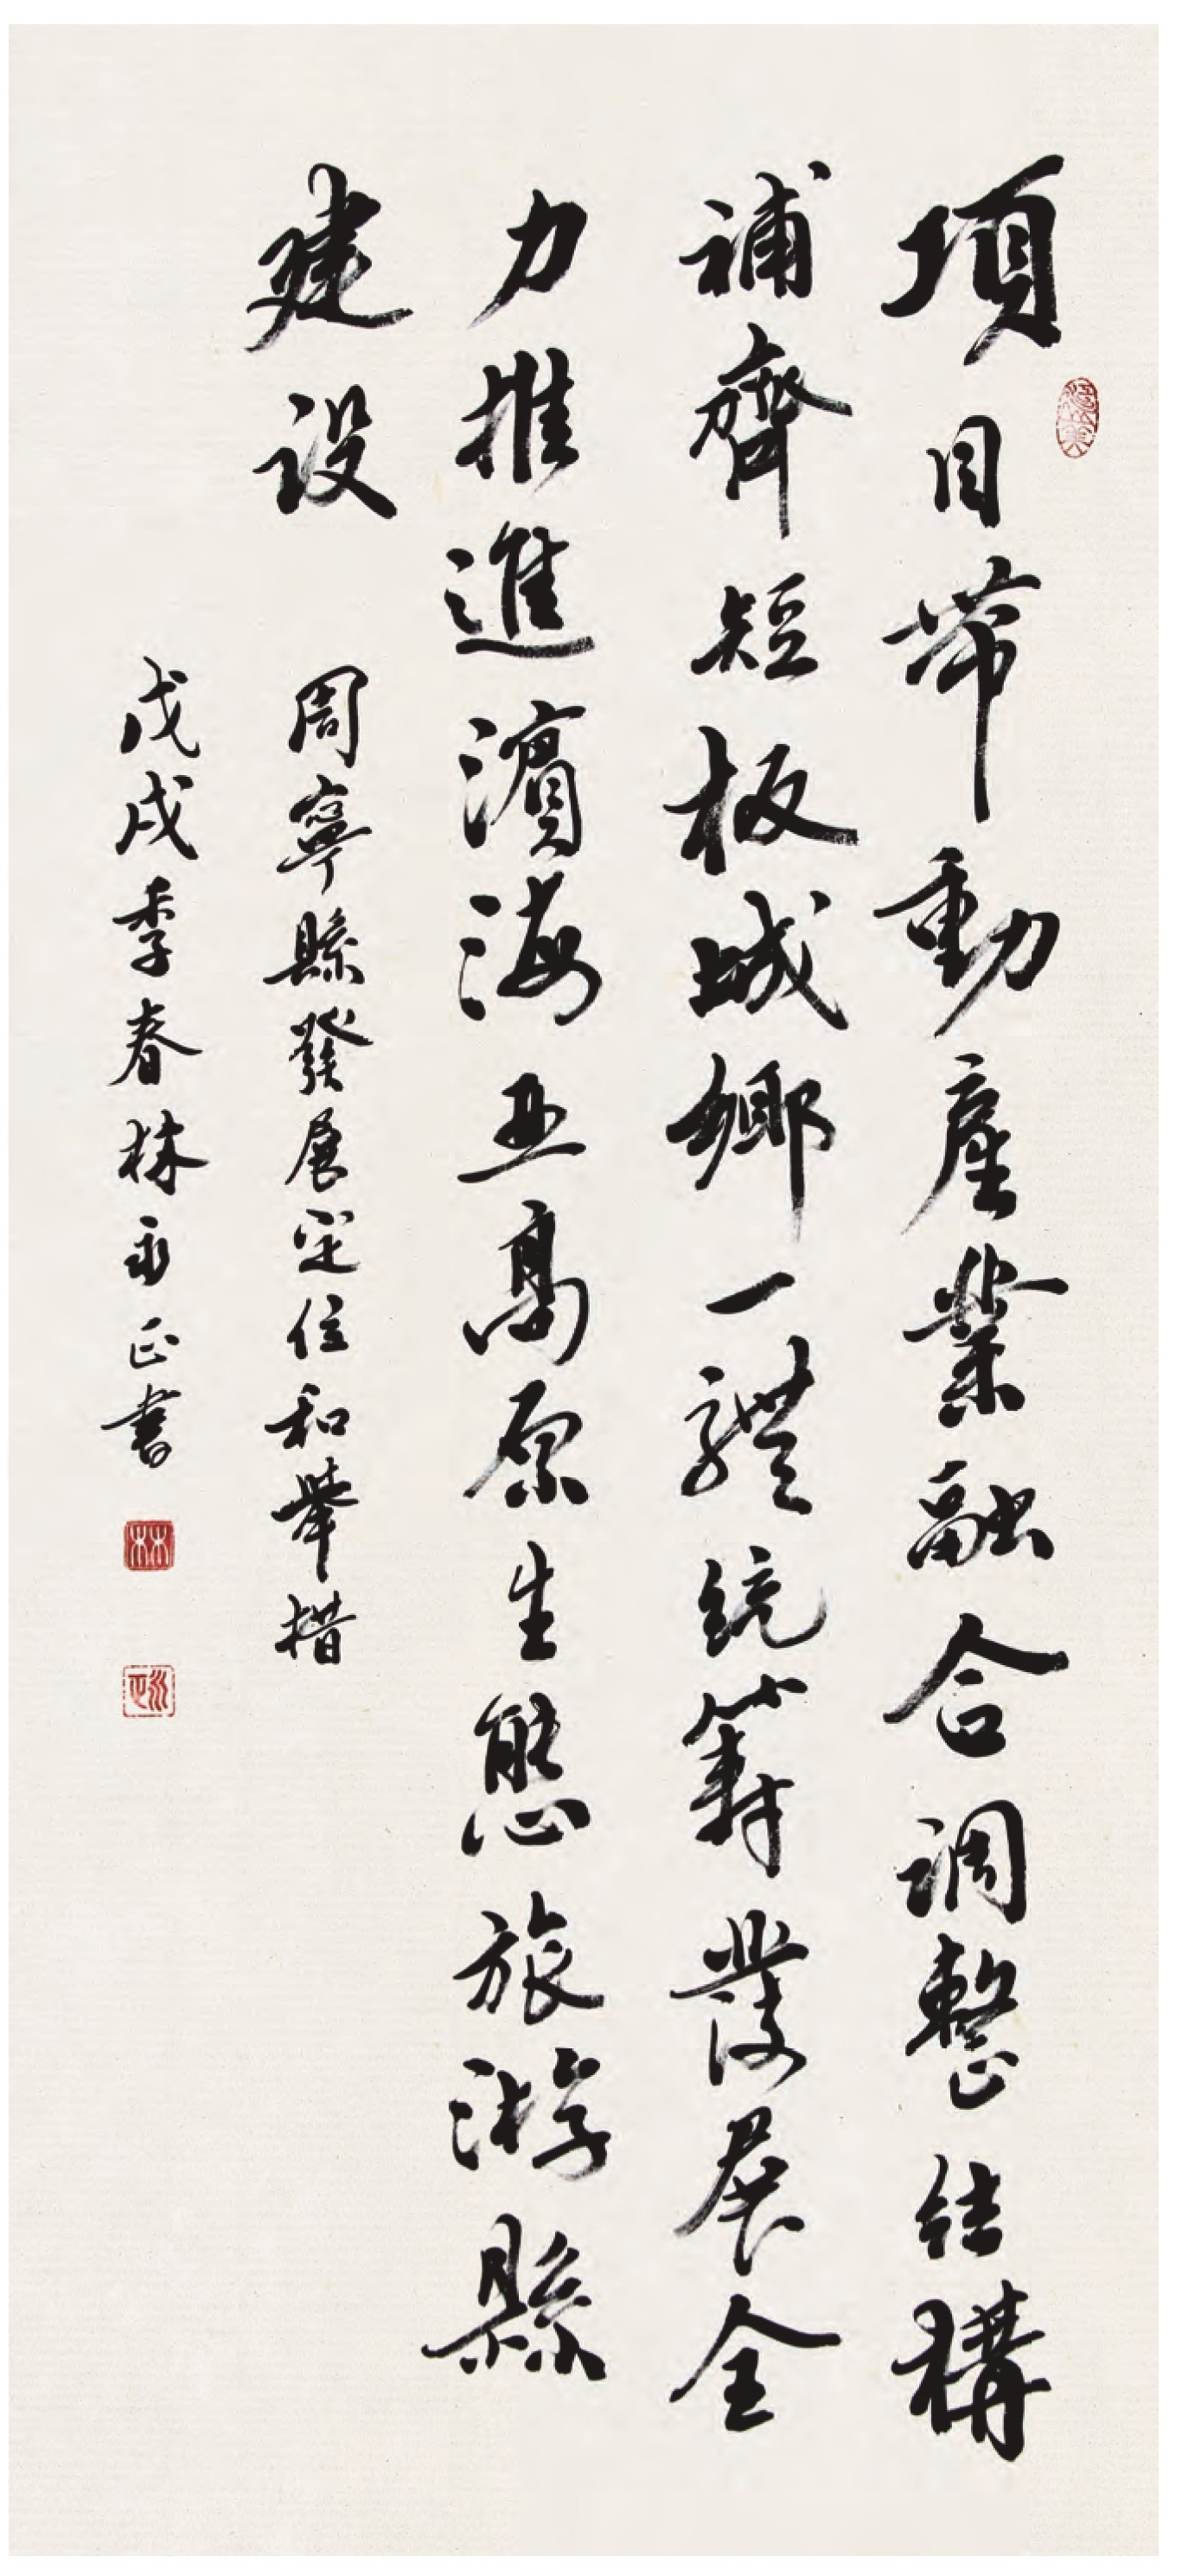 項目帶動產業融合调整结構
補齊短板城鄉一體統籌發展全
力推進濱海亚高原生態旅游縣
建设
周寧縣發展定位和舉措
戊戌季春林永正書
林
永正